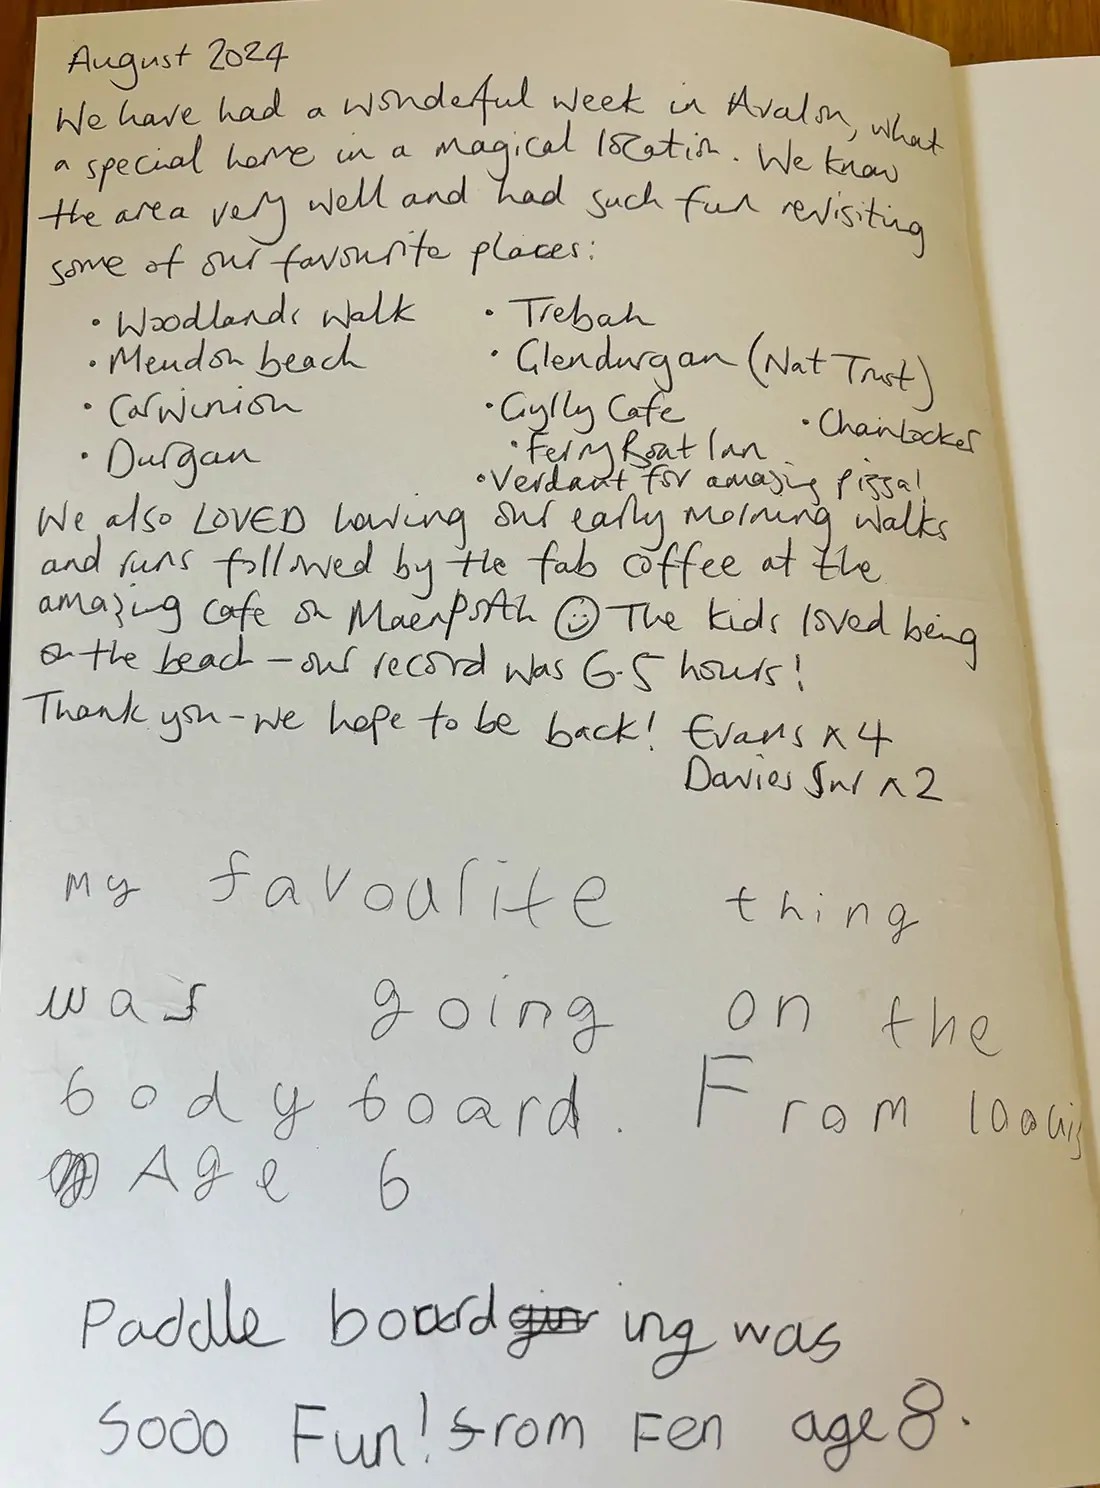 August 2024
We have had a wonderful week in Avalon, what
a special home in a magical location. We know
the area very well and had such fun revisiting
some of our favourite places:
• Woodlands walk
• Meudon beach
• Carwinion
• Durgan
• Trebah
• Glendurgan (Nat Trust)
• Gylly Cafe
• Chain Locker
• Ferry Boat Inn
• Verdant for amazing pizza!
We also LOVED having our early morning walks
and runs followed by the fab coffee at the
amazing cafe on Maenporth ☺ The kids loved being
on the beach – our record was 6.5 hours!
Thank you – we hope to be back! Evans x 4
Davies Snr x 2
my favourite thing
was going on the
body board. From
Age 6
Paddle boarding was
sooo Fun! from Fen age 8.